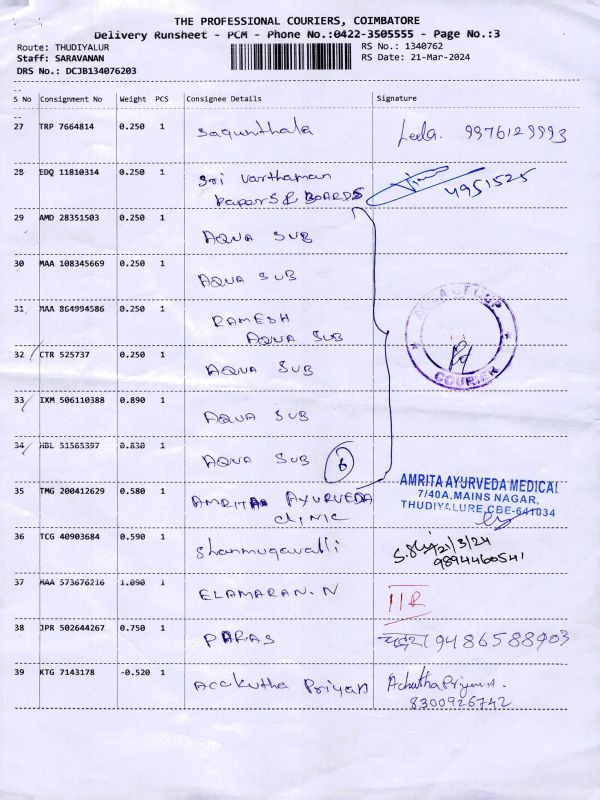 THE PROFESSIONAL COURIERS, COIMBATORE
Delivery Runsheet - PCM - Phone No.:0422-3505555 - Page No.:3
Route: THUDIYALUR RS No.: 1340762
Staff: SARAVANAN RS Date: 21-Mar-2024
DRS No.: DCJB134076203
S No Consignment No Weight PCS Consignee Details Signature
27 TRP 7664814 0.250 1 Sagunthala Leela. 9976129993
28 EDQ 11810314 0.250 1 Sri Varthaman
Papers & BOARDS 4951525
29 AMD 28351503 0.250 1
AQUA SUB
30 MAA 108345669 0.250 1
AQUA SUB
31 MAA 864994586 0.250 1 RAMESH
AQUA SUB
COURIER
32 CTR 525737 0.250 1 AQUA SUB
33 IXM 506110388 0.890 1
AQUA SUB
34 HBL 51565397 0.830 1
AQUA SUB 6
35 TMG 200412629 0.580 1 AMRITA AYURVEDA
CLINIC
AMRITA AYURVEDA MEDICAL
7/40A, MAINS NAGAR,
THUDIYALURE, CBE-641034
36 TCG 40903684 0.590 1 Shanmugavalli 21/3/24
9894460541
37 MAA 573676216 1.090 1 ELAMARAN.N
38 JPR 502644267 0.750 1 PARAS 9486588903
39 KTG 7143178 -0.520 1 Acchutha Priyan Achutha Priyan.
8300926742